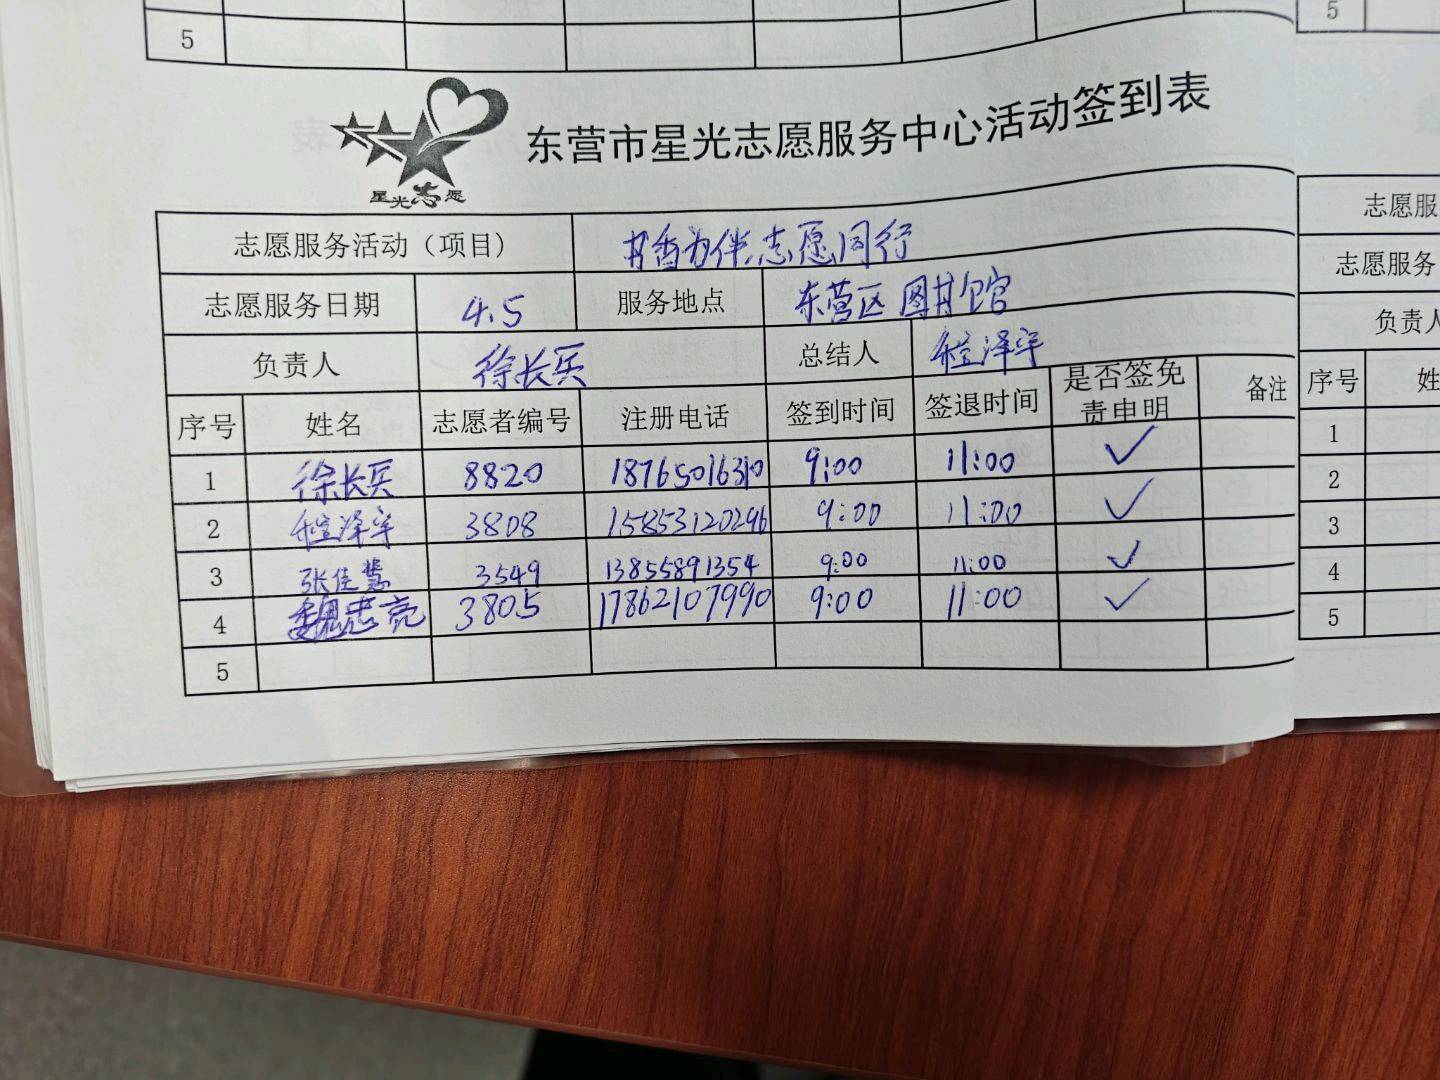 5
5
东营市星光志愿服务中心活动签到表
星光志愿
志愿服务活动（项目） 书香为伴，志愿同行
志愿服务日期 4.5 服务地点 东营区图书馆
负责人 徐长兵 总结人 程泽宇
序号 姓名 志愿者编号 注册电话 签到时间 签退时间 是否签免责申明 备注
1 徐长兵 8820 18765016310 9:00 11:00 ✓
2 程泽宇 3808 15853120296 9:00 11:00 ✓
3 张佳慧 3549 13855891354 9:00 11:00 ✓
4 魏志亮 3805 17862107990 9:00 11:00 ✓
5
志愿服
志愿服务
负责人
序号 姓
1
2
3
4
5